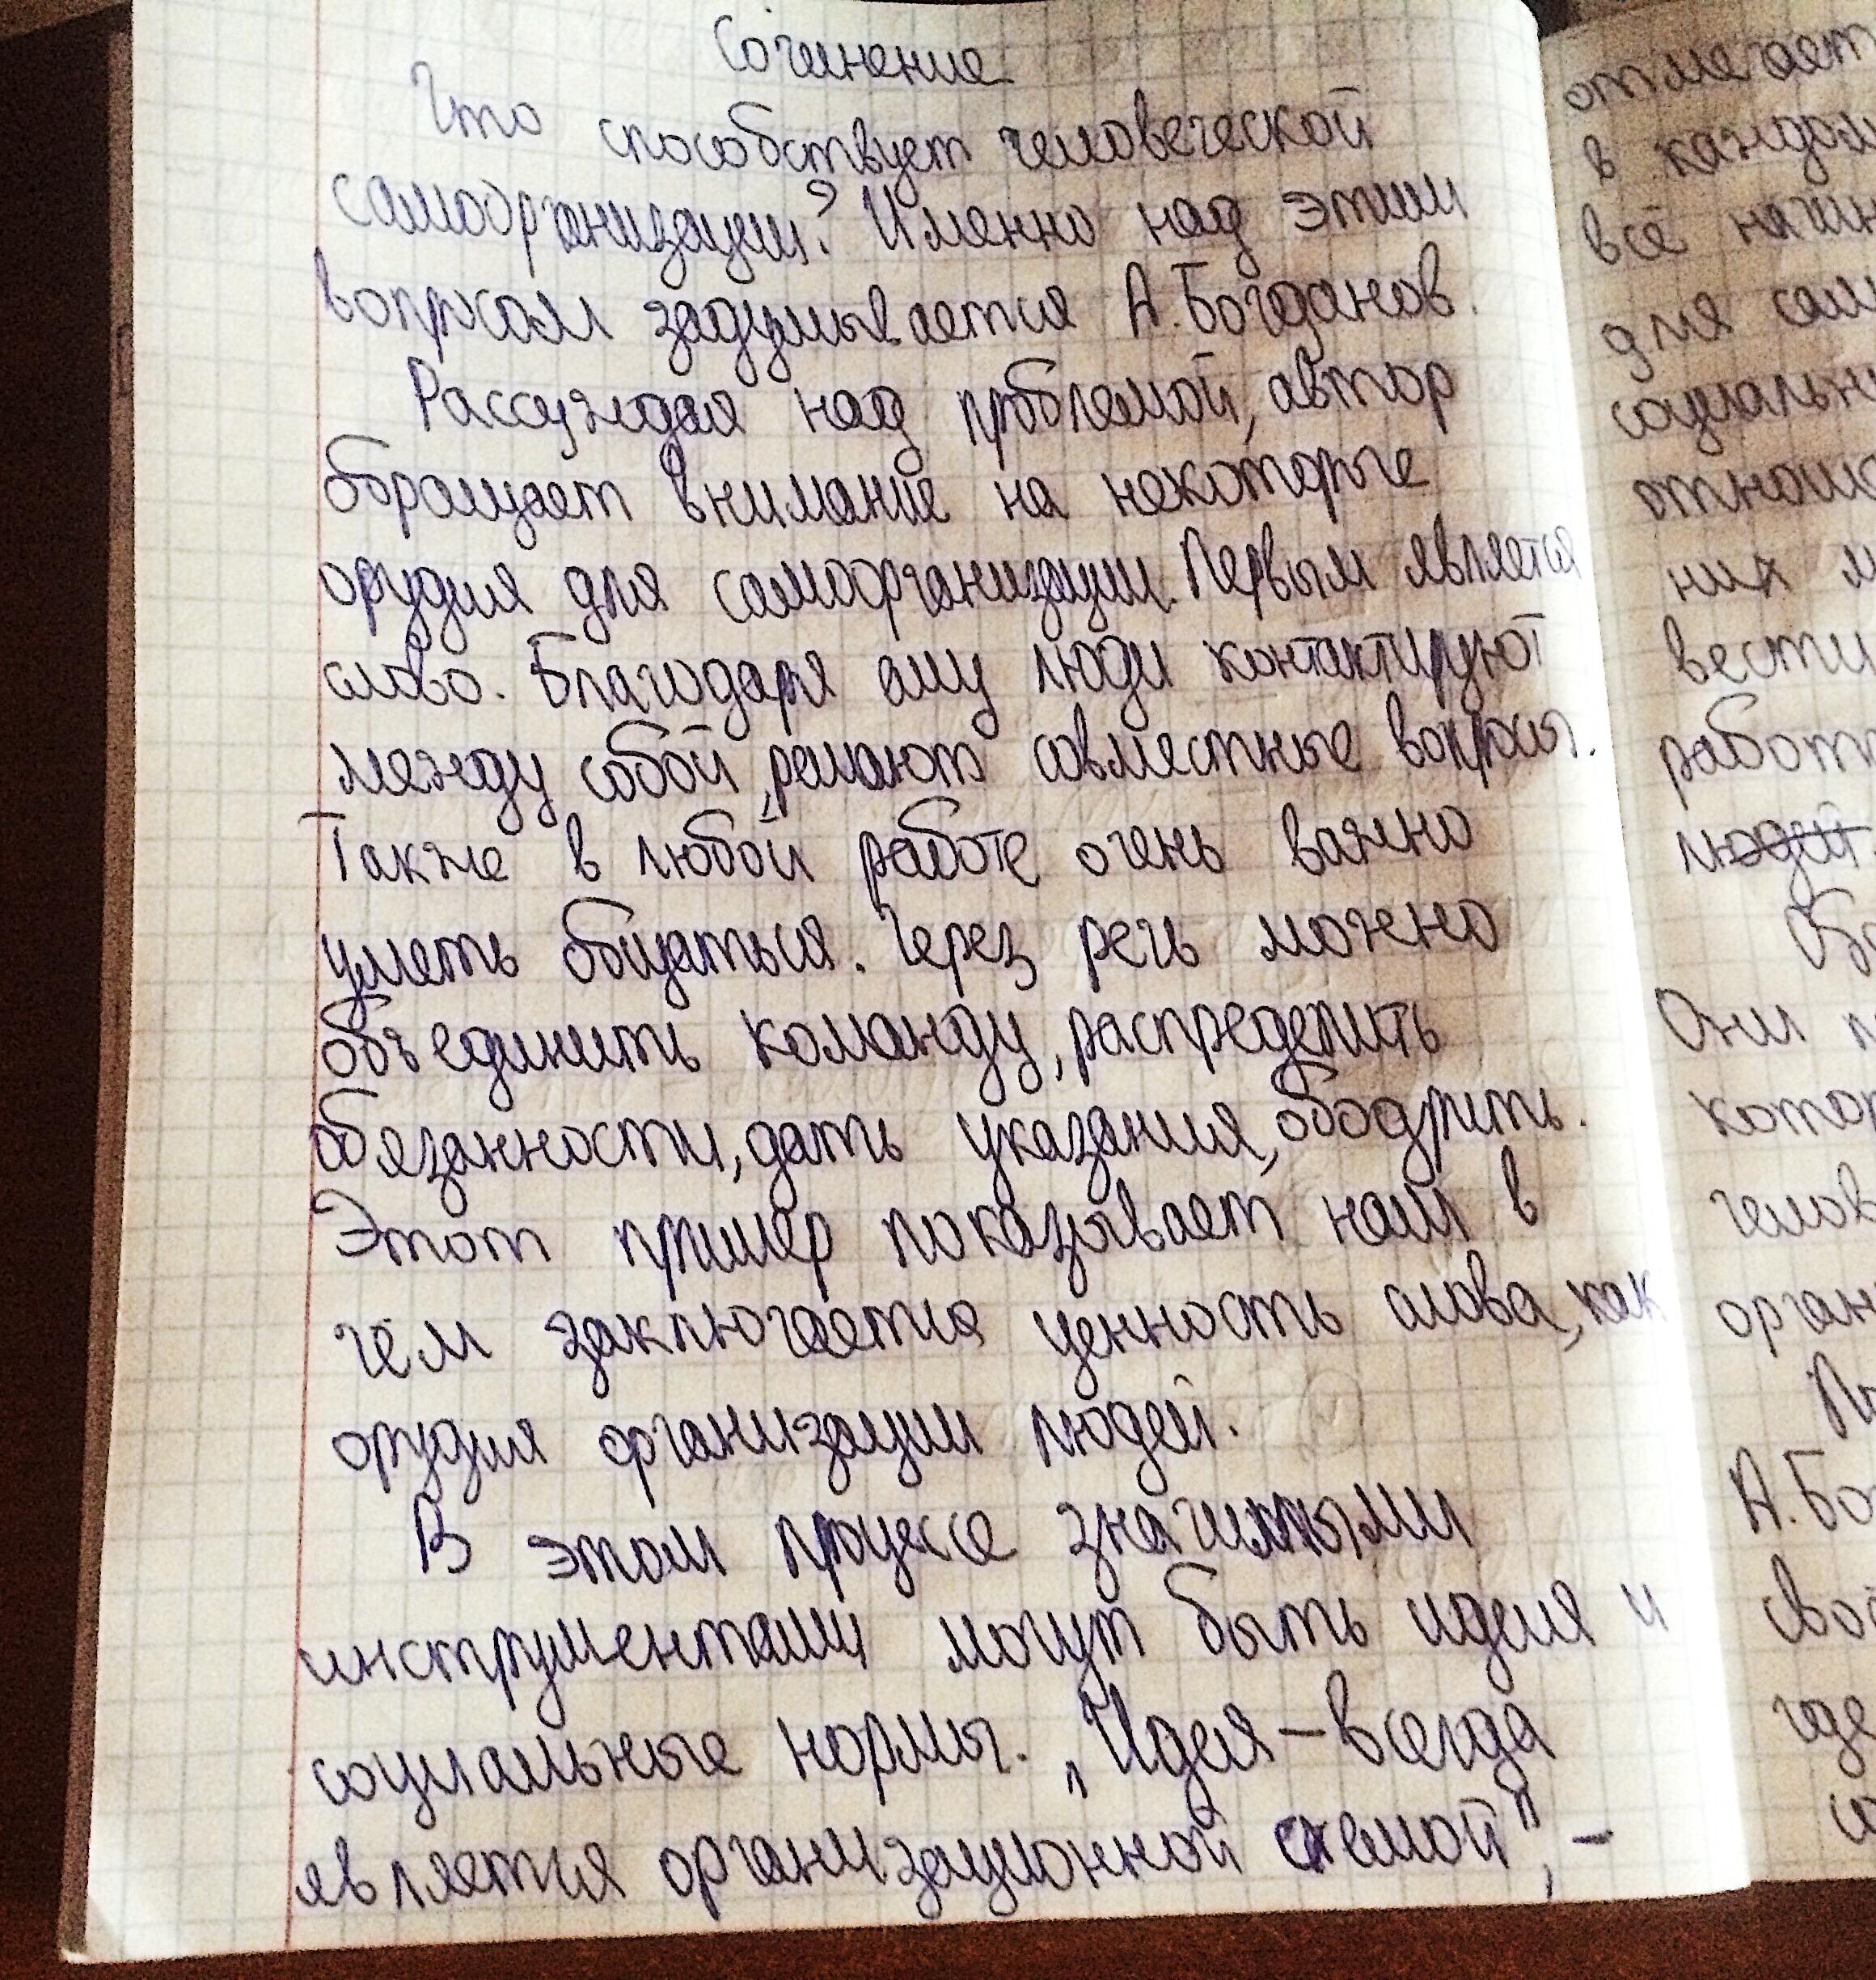 Сочинение
Что способствует человеческой
самоорганизации? Именно над этим
вопросом задумывается А.Богданов.
Рассуждая над проблемой, автор
обращает внимание на некоторые
орудия для самоорганизации. Первым является
слово. Благодаря ему люди контактируют
между собой, решают совместные вопросы.
Также в любой работе очень важно
уметь общаться. Через речь можно
объединить команду, распределить
обязанности, дать указания, ободрить.
Этот пример показывает нам в
чём заключается ценность слова, как
орудия организации людей.
В этом процессе значимыми
инструментами могут быть идея и
социальные нормы. „Идея – всегда
является организационной схемой", –
отмечает
в каждом
всё начин
для сам
социальн
отноше
них м
вести
работ
людей.
Об
Они п
котор
челов
орган
А.Бог
свой
где